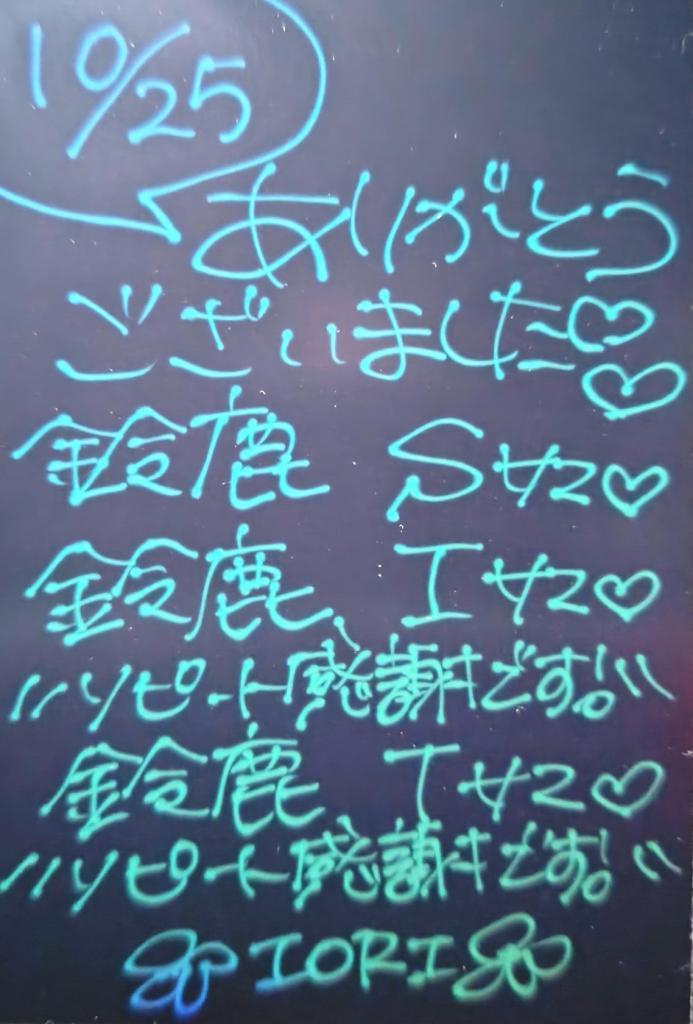 10/25
ありがとう
ございました♡♡
鈴鹿 Sサマ♡
鈴鹿 Iサマ♡
\\リピート感謝です!//
鈴鹿 Tサマ♡
\\リピート感謝です!//
IORI